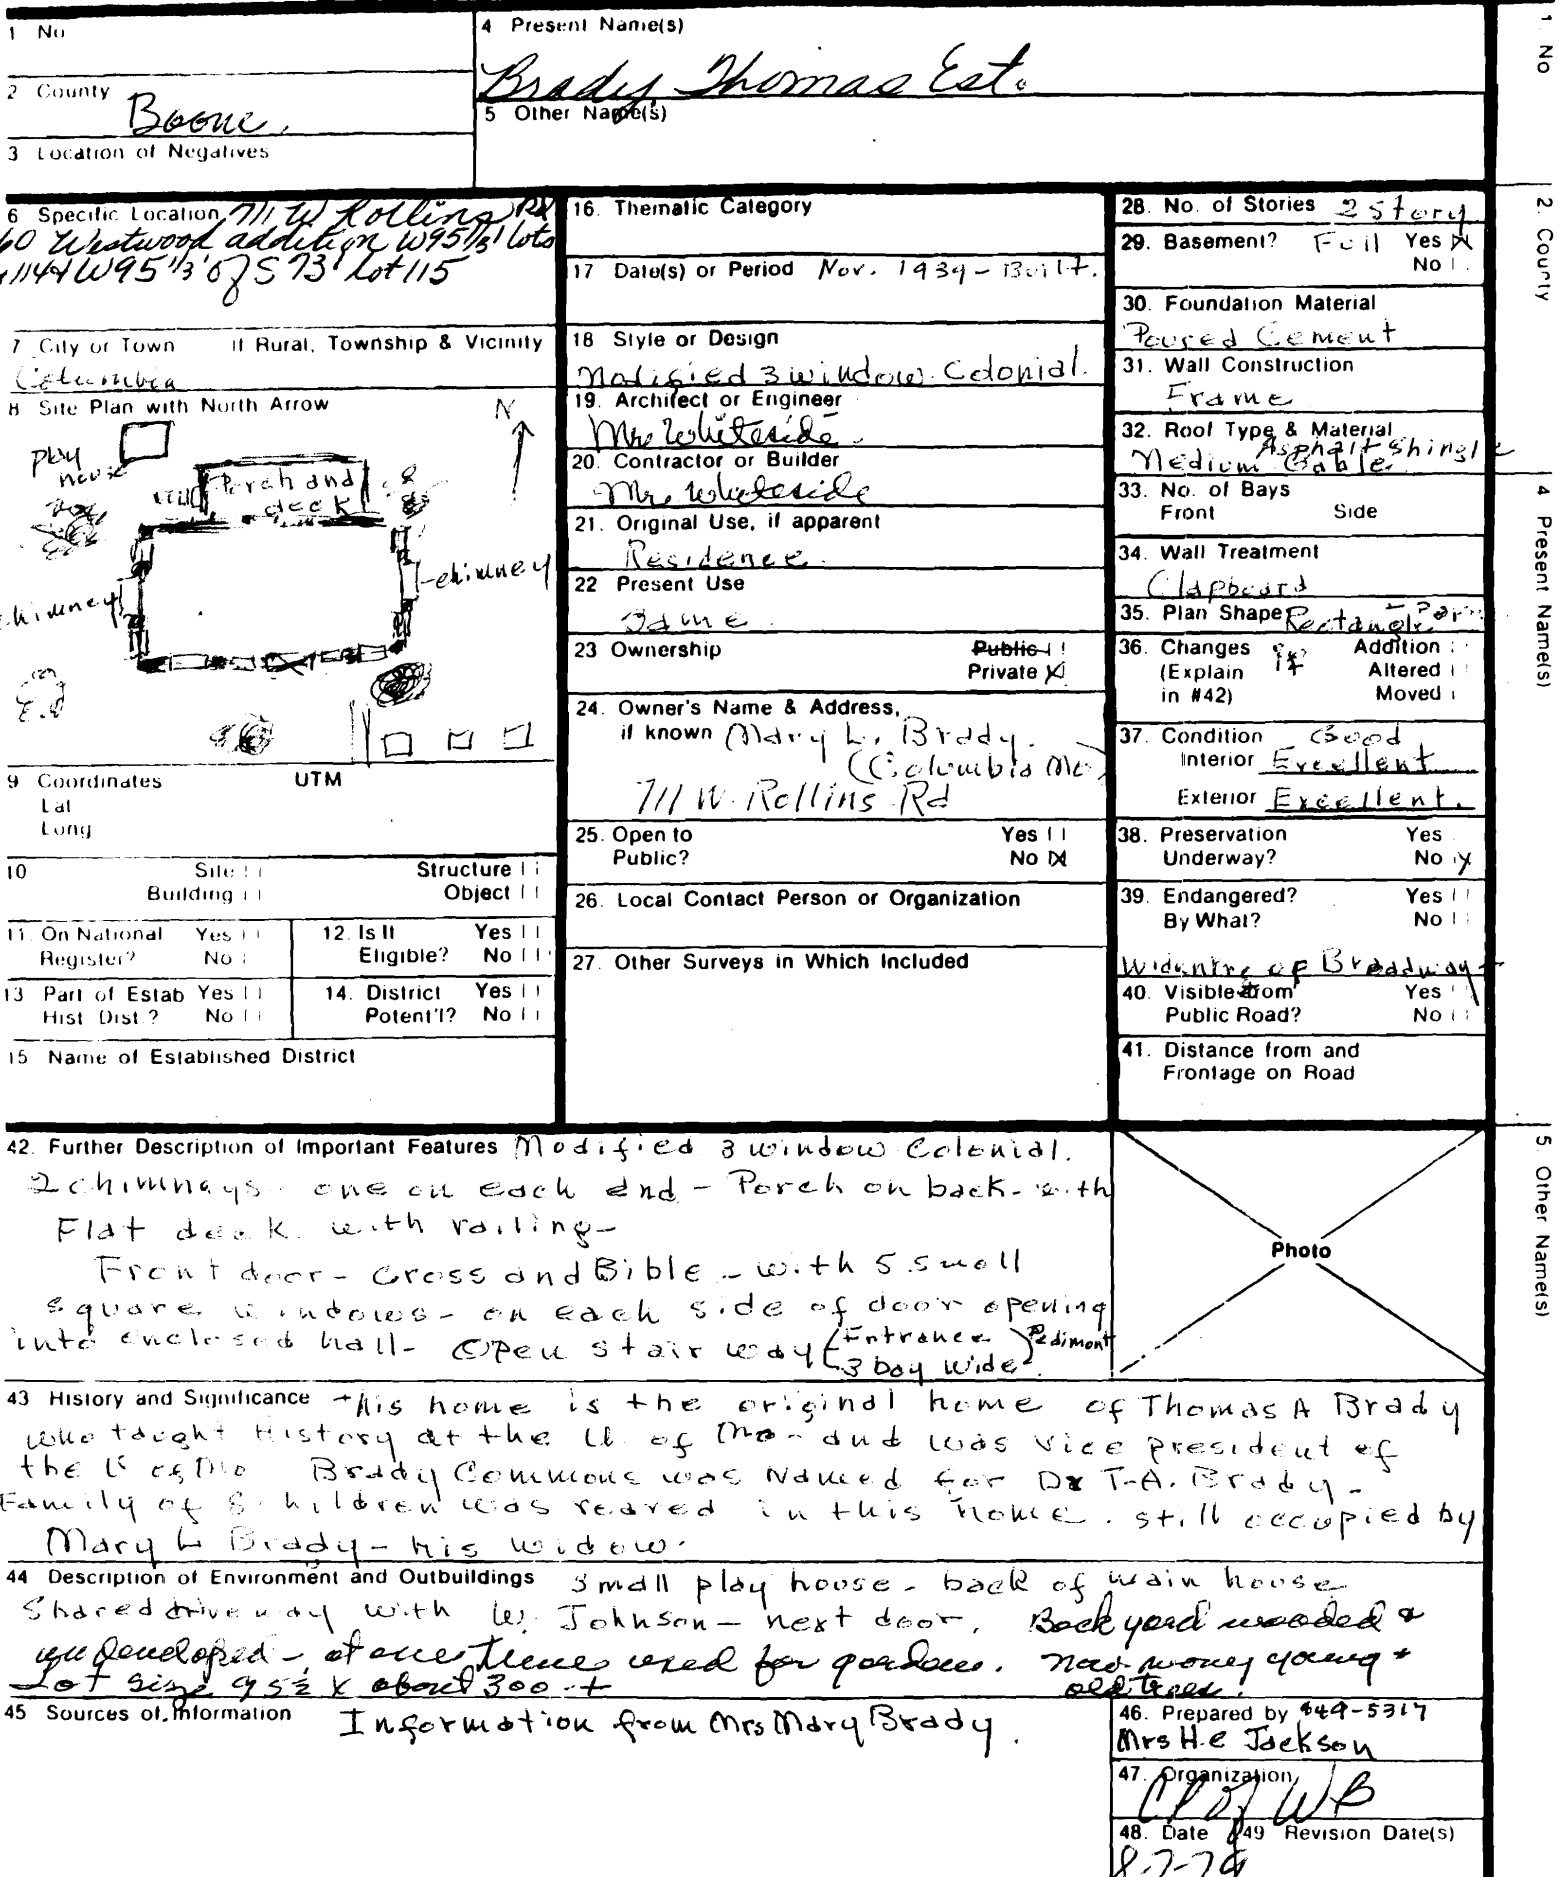 1 No
4 Present Name(s)
Brady, Thomas Est.
2 County
Boone
5 Other Name(s)
3 Location of Negatives
6 Specific Location 711 W Rollins Rd
60 Westwood addition W95 1/3' lots
114 & W95 1/3' of S 73' Lot 115
7 City or Town If Rural, Township & Vicinity
Columbia
8 Site Plan with North Arrow
N
play
house
Porch and
deck
chimney
chimney
9 Coordinates UTM
Lat
Long
10 Site Structure
Building Object
11. On National Register? Yes No
12. Is It Eligible? Yes No
13 Part of Estab Hist Dist.? Yes No
14. District Potent'l? Yes No
15 Name of Established District
16. Thematic Category
17 Date(s) or Period Nov. 1939 - Built.
18 Style or Design
Modified 3 window Colonial.
19. Architect or Engineer
Mr. Whiteside.
20. Contractor or Builder
Mr. Whiteside
21. Original Use, if apparent
Residence.
22 Present Use
Same
23 Ownership Public
Private X
24. Owner's Name & Address,
if known Mary L. Brady.
(Columbia Mo)
711 W. Rollins Rd
25. Open to Yes
Public? No X
26. Local Contact Person or Organization
27. Other Surveys in Which Included
28. No. of Stories 2 Story
29. Basement? Full Yes X
No
30. Foundation Material
Poured Cement
31. Wall Construction
Frame
32. Roof Type & Material
Asphalt Shingle
Medium Gable.
33. No. of Bays
Front Side
34. Wall Treatment
Clapboard
35. Plan Shape Rectangle
36. Changes Addition
(Explain Altered
in #42) Moved
37. Condition Good
Interior Excellent
Exterior Excellent.
38. Preservation Yes
Underway? No X
39. Endangered? Yes
By What? No
Widening of Broadway
40. Visible from Yes
Public Road? No
41. Distance from and
Frontage on Road
42. Further Description of Important Features Modified 3 window Colonial.
2 chimneys - one on each end - Porch on back - with
Flat deck with railing -
Front door - Cross and Bible - with 5 small
square windows - on each side of door opening
into enclosed hall - Open stair way (Entrance 3 bay wide) Pediment
Photo
43 History and Significance This home is the original home of Thomas A Brady
who taught History at the U. of Mo - and was vice president of
the U of Mo Brady Commons was Named for Dr T.A. Brady -
Family of 8 children was reared in this home. still occupied by
Mary L Brady - his widow.
44 Description of Environment and Outbuildings Small play house - back of main house
Shared driveway with W. Johnson - next door. Back yard wooded &
undeveloped - at one time used for gardens. Now many young &
old trees.
Lot Size 95 1/2 x about 300 ft
45 Sources of Information Information from Mrs Mary Brady.
46. Prepared by 449-5317
Mrs H.C Jackson
47. Organization
48. Date 49 Revision Date(s)
1 No
2. County
4 Present Name(s)
5 Other Name(s)